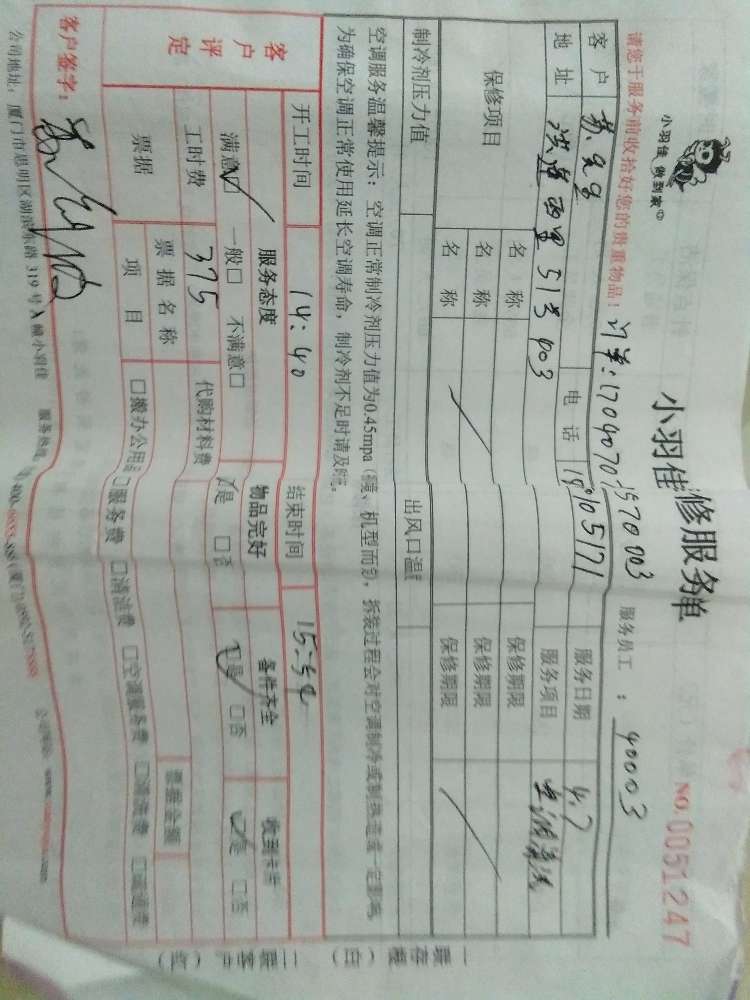 小羽佳 做到家
小羽佳 修服务单
NO:0051247
请您于服务前收拾好您的贵重物品！
服务员工 ： 40003
客户 苏先生 电话 服务日期 4.7
地址 洪莲西里51号903 服务项目 空调清洗
保修项目 名称 保修期限
名称 保修期限
名称 保修期限
制冷剂压力值 出风口温
空调服务温馨提示：空调正常制冷剂压力值为0.45mpa 机型而 拆装过程会对空调制冷或制热造成一定影响,
为确保空调正常使用延长空调寿命，制冷剂不足时请及
开工时间 14:40 结束时间
客户评定 服务态度 物品完好 备件齐全 收到
满意 一般 不满意 是 否 是 否 是 否
工时费 375 代购材料费
票据 票据名称 票据金额
项目 搬办公用 服务费 清洁费 空调服务费
客户签字：
公司地址：厦门市思明区湖滨东路319号A幢小羽佳 服务热线
一联存根（白） 二联客户（红）